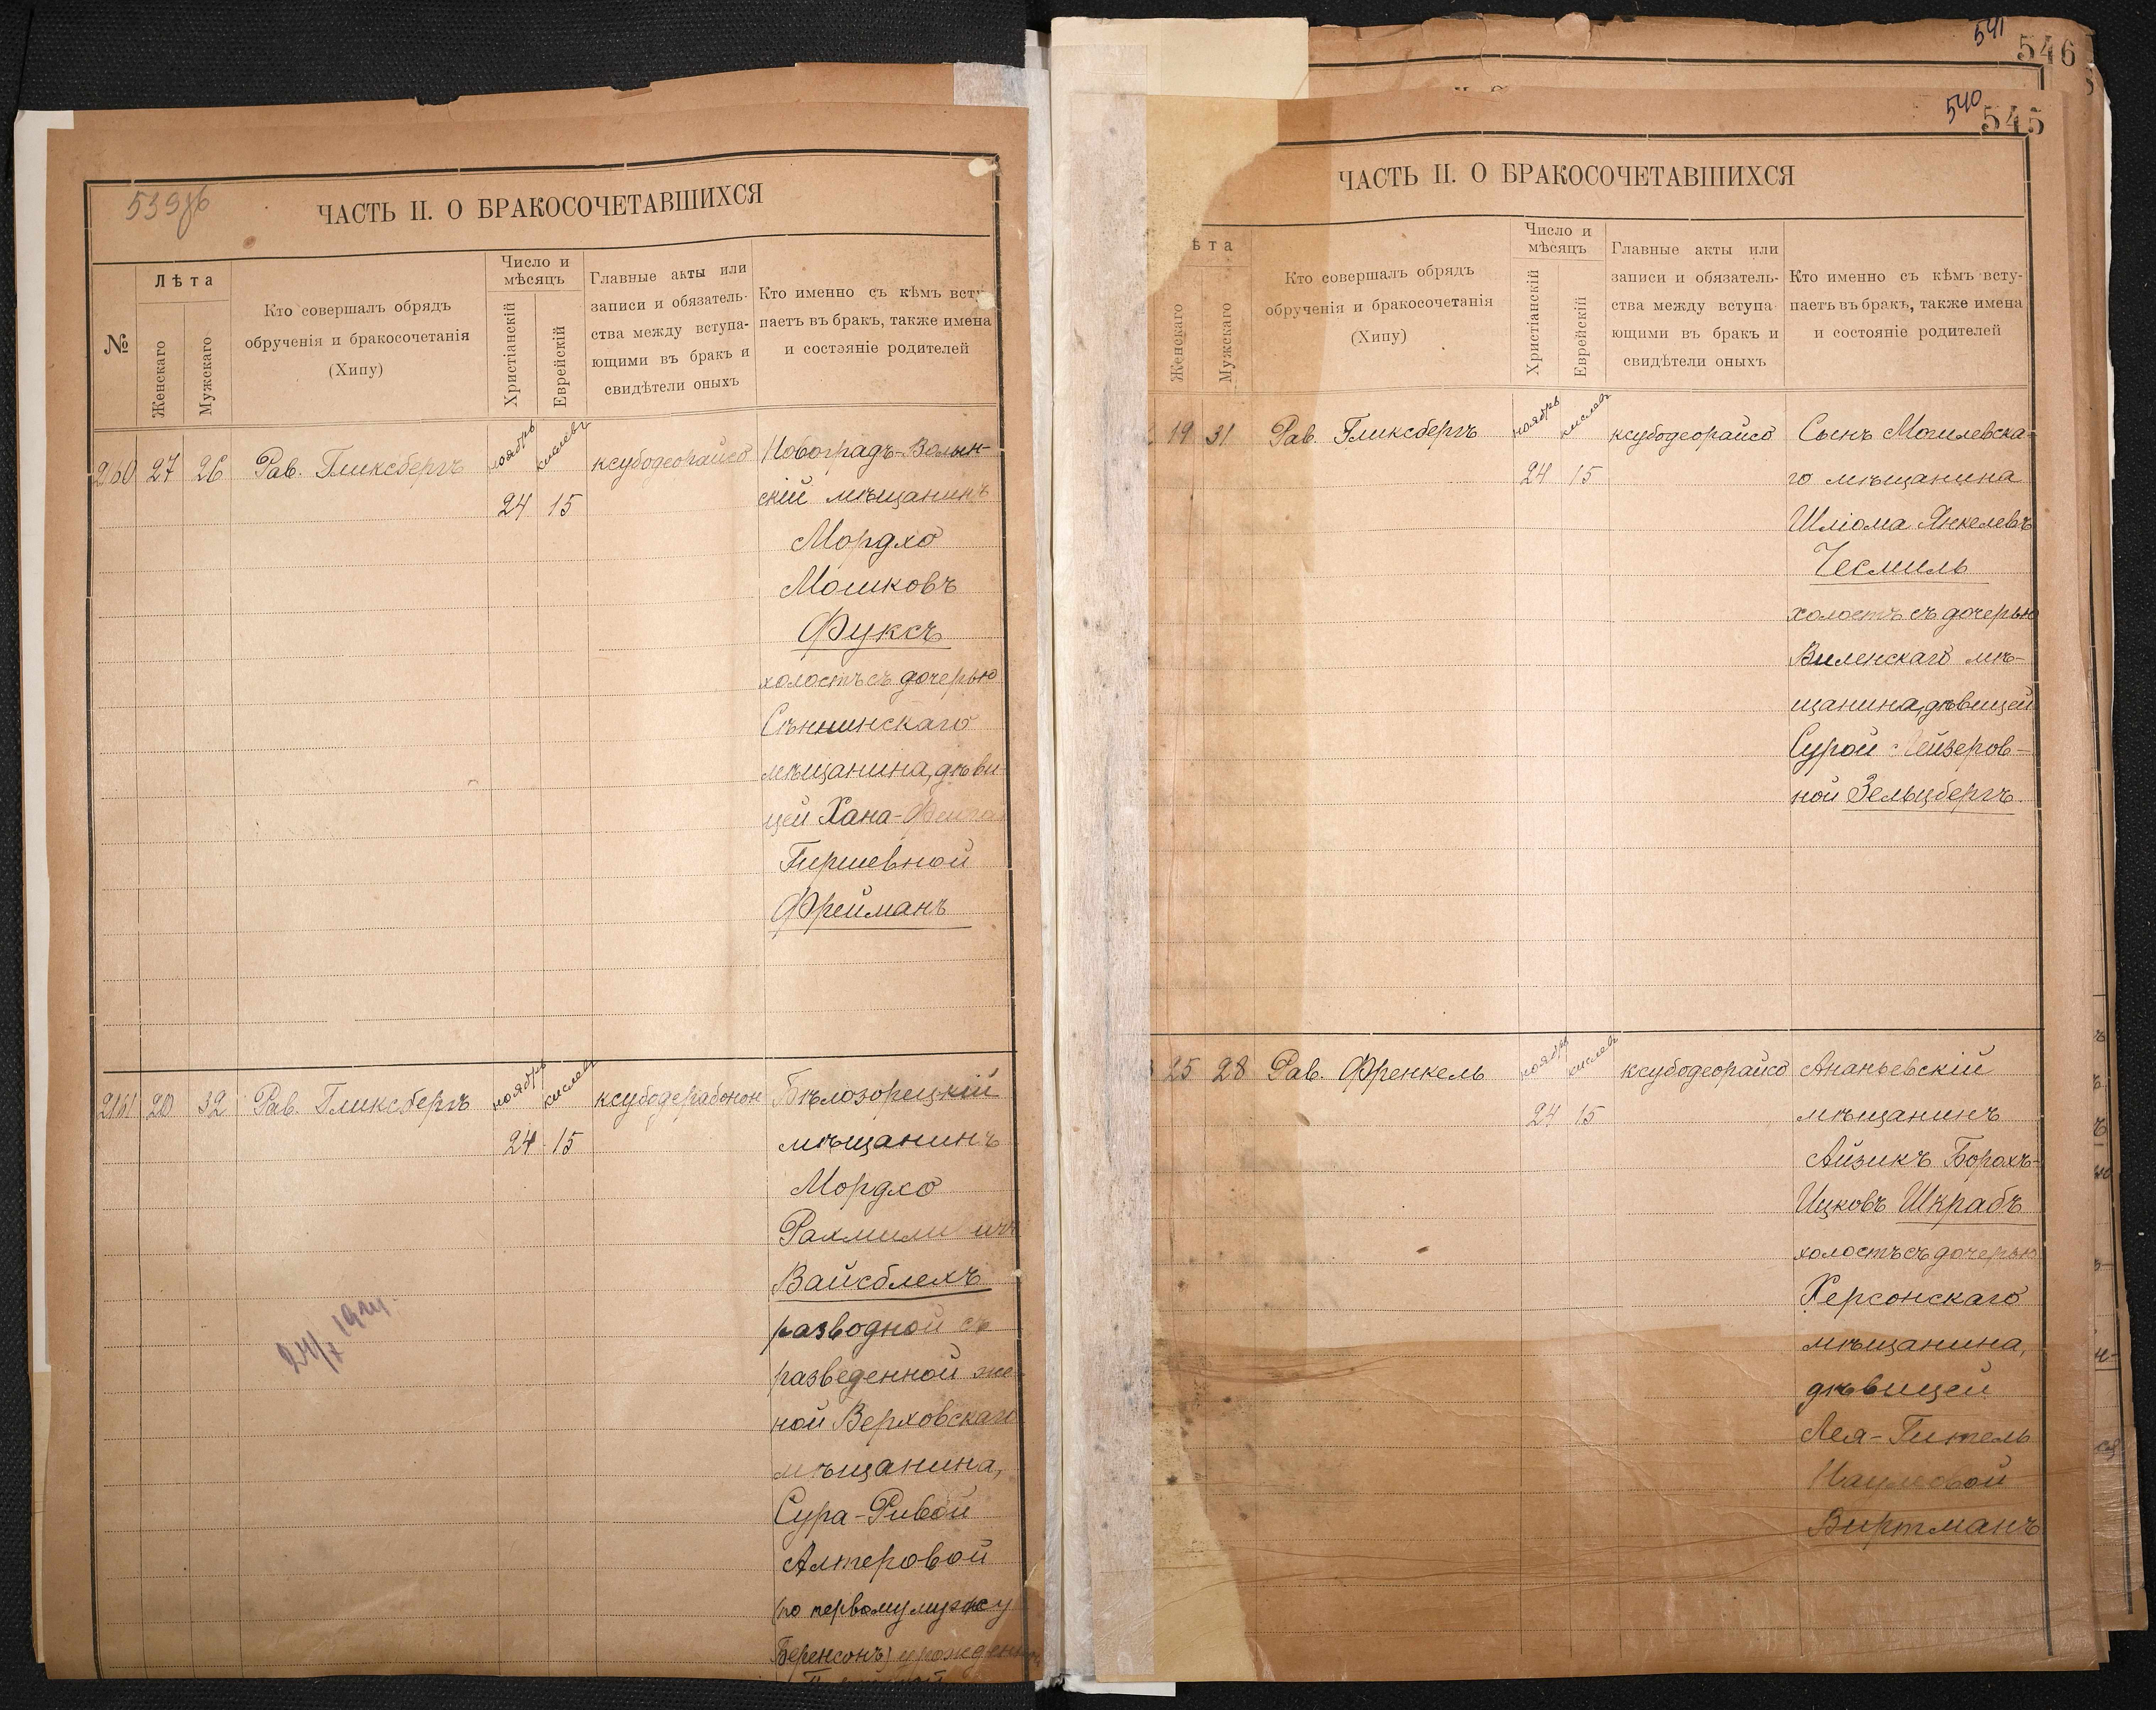 539об
ЧАСТЬ II. О БРАКОСОЧЕТАВШИХСЯ
№
Лѣта
Женскаго
Мужскаго
Кто совершалъ обрядъ
обрученія и бракосочетанія
(Хипу)
Число и
мѣсяцъ
Христіанскій
Еврейскій
Главные акты или
записи и обязатель-
ства между вступа-
ющими въ бракъ и
свидѣтели оныхъ
Кто именно съ кѣмъ всту
паетъ въ бракъ, также имена
и состояніе родителей
27 26 Рав. Гликсбергъ ноябрь кислевъ ксубодеорайсо Новоградъ-Волын-
24 15 скій мѣщанинъ
Мордхо
Мошковъ
Фуксъ
холостъ съ дочерью
Сѣннинскаго
мѣщанина, дѣви-
цей Хана-Фейга
Гиршевной
Фрейманъ
20 32 Рав. Гликсбергъ ноябрь кислевъ ксубодерабонон Бѣлозорецкій
24 15 мѣщанинъ
Мордхо
Рахмилевичъ
Вайсблехъ
разводной съ
разведенной же-
ной Верховскаго
мѣщанина,
Сура-Ривой
Алтеровой
(по первому мужу
Беренсонъ) урожденной
541
546
540
545
ЧАСТЬ II. О БРАКОСОЧЕТАВШИХСЯ
ѣта
Женскаго
Мужскаго
Кто совершалъ обрядъ
обрученія и бракосочетанія
(Хипу)
Число и
мѣсяцъ
Христіанскій
Еврейскій
Главные акты или
записи и обязатель-
ства между вступа
ющими въ бракъ и
свидѣтели оныхъ
Кто именно съ кѣмъ всту-
паетъ въ бракъ, также имена
и состояніе родителей
19 31 Рав. Гликсбергъ ноябрь кислевъ ксубодеорайсо Сынъ Могилевска-
24 15 го мѣщанина
Шліома Янкелевъ
Чесмиль
холостъ съ дочерью
Виленскаго мѣ-
щанина, дѣвицей
Сурой Лейзеров-
ной Зельцбергъ
25 28 Рав. Френкель ноябрь кислевъ ксубодеорайсо Ананьевскій
24 15 мѣщанинъ
Айзикъ Борохъ-
Ицковъ Шкрабъ
холостъ съ дочерью
Херсонскаго
мѣщанина,
дѣвицей
Лея-Гитель
Наумовой
Виртманъ